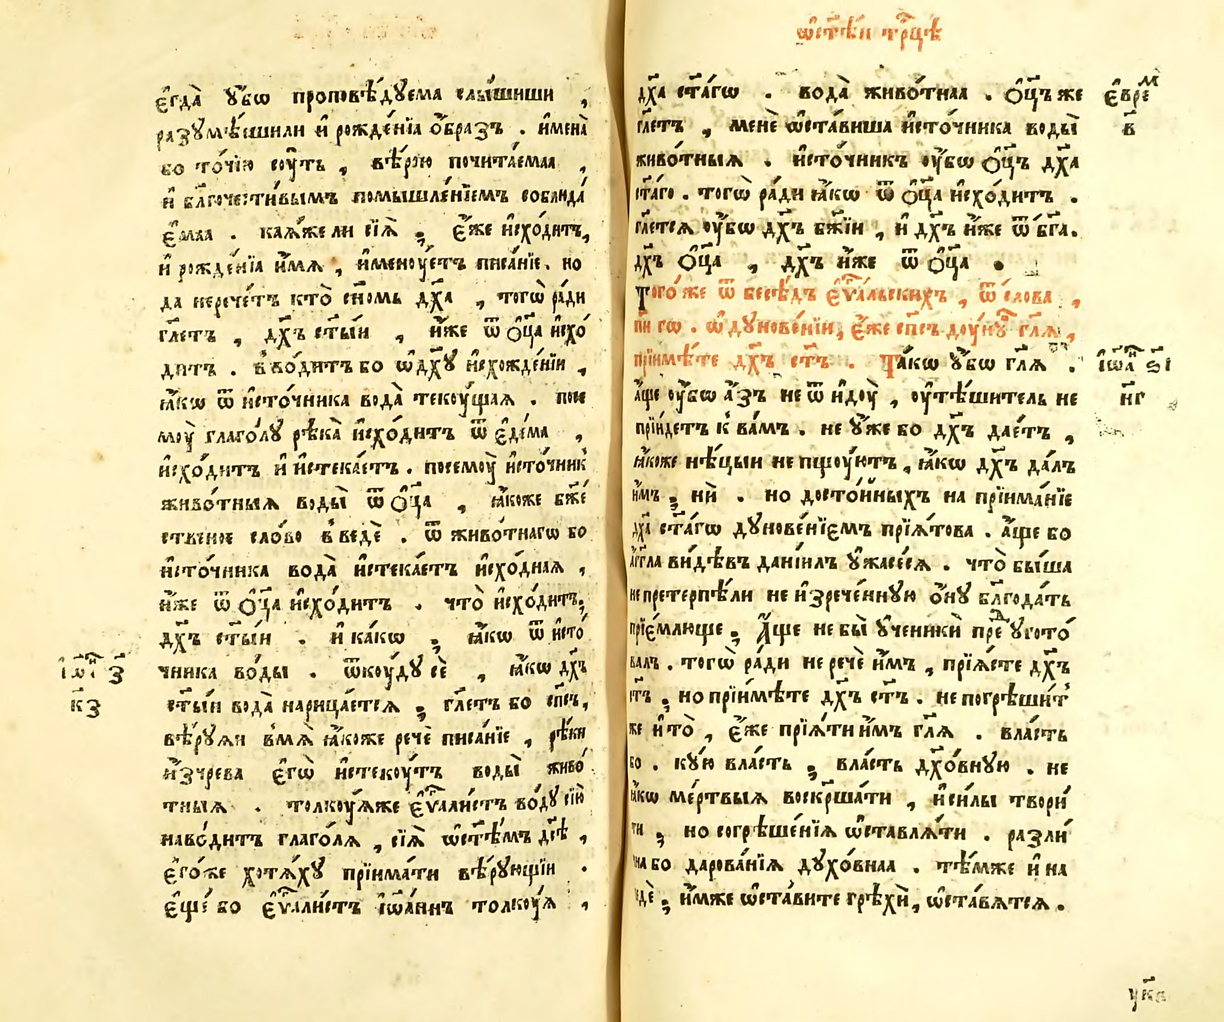 є҆гда̀ ᲂу҆́бѡ проповѣ́дꙋема слы́шиши ,
разꙋмѣ́ешили и҆ рожде́нїа ѻ҆́бразъ . и҆мена̀
бо то́чїю сꙋ́ть , вѣ́рою почита́емаа ,
и҆ бл҃гочести́вымъ помышле́нїемъ соблюда́
є҆маа . каѧ́же ли сїѧ̀ , є҆́же и҆схо́дитъ,
и҆ рожде́нїа и҆́мѧ , и҆менꙋ́етъ писа́нїе. но
да нерече́тъ кто̀ сн҃омь дх҃а , тогѡ̀ ра́ди
гл҃етъ , дх҃ъ ст҃ы́и , и҆́же ѿ ѻ҆ц҃а и҆схо́
дитъ . вво́дитъ бо ѡ҆ дх҃ꙋ и҆схожде́нїи ,
ꙗ҆́кѡ ѿ и҆сто́чника вода̀ текꙋ́щаѧ . посе
мꙋ̀ глаго́лꙋ рѣка̀ и҆схо́дитъ ѿ є҆де́ма ,
и҆схо́дитъ и҆ и҆стека́етъ . посемꙋ̀ и҆сто́чник
живо́тныѧ воды̀ ѿ ѻ҆ц҃а , ꙗ҆́коже бж҃е́
ственое сло́во введѐ . ѿ живо́тнагѡ бо
и҆сто́чника вода̀ и҆стека́етъ и҆схо́днаѧ ,
и҆́же ѿ ѻ҆ц҃а и҆схо́дитъ . что̀ и҆схо́дитъ;
дх҃ъ ст҃ы́и . и҆ ка́кѡ ; ꙗ҆́кѡ ѿ и҆сто́
чника во́ды . ѿкꙋ́дꙋ сѐ , ꙗ҆́кѡ дх҃ъ
і҆ѡа҃н з҃
к҃з
ст҃ы́и вода̀ нарица́етсѧ ; гл҃етъ бо сп҃съ,
вѣ́рꙋѧи вмѧ̀ ꙗ҆́коже речѐ писа́нїе , рѣ́ки
и҆зчре́ва є҆гѡ̀ и҆стекꙋ́тъ воды̀ живо́
тныѧ . толкꙋ́ѧже є҆ѵ҃али́стъ во́дꙋ сїю̀
наво́дитъ глаго́лѧ , сїѧ̀ ѡ҆ ст҃ѣ́мъ дс҃ѣ ,
є҆го́же хотѧ́хꙋ прїима́ти вѣ́рꙋющїи .
є҆щѐ бо є҆ѵ҃али́стъ і҆ѡа́ннъ толкꙋ́ѧ ,
ѡ҆ ст҃ѣ́и трⷪ҇цѣ
дх҃а ст҃а́гѡ . вода̀ живо́тнаа . ѻ҆ц҃ъ же
гл҃етъ , менѐ ѡ҆ста́виша и҆сто́чника воды̀
є҆вре́ м
в҃
живо́тныѧ . и҆сто́чникъ ᲂу҆́бѡ ѻ҆ц҃ъ дх҃а
ст҃а́го . тогѡ̀ ра́ди ꙗ҆́кѡ ѿ ѻ҆ц҃а и҆схо́дитъ .
гл҃етсѧ ᲂу҆́бѡ дх҃ъ бж҃їи , и҆ дх҃ъ и҆́же ѿ бг҃а.
дх҃ъ ѻ҆ц҃а , дх҃ъ и҆́же ѿ ѻ҆ц҃а .
Того́же ѿ бесѣ́дъ є҆ѵ҃а́льскихъ , ѿ сло́ва ,
пи гѡ . ѡ҆ дꙋнове́нїи, є҆́же сп҃съ дꙋ́нꙋ гл҃ѧ ,
прїимѣ́те дх҃ъ ст҃ъ . Та́кѡ ᲂу҆́бѡ гл҃ѧ .
і҆ѡа҃н ѕ҃і
и҃г
а҆́ще ᲂу҆́бѡ а҆́зъ не ѿидꙋ̀ , ᲂу҆тѣ́шитель не
прїи́детъ к ва́мъ . не ᲂу҆́же бо дх҃ъ дае́тъ ,
ꙗ҆́коже нѣ́цыи непщꙋ́ютъ , ꙗ҆́кѡ дх҃ъ да́лъ
и҆̀мъ ; нѝ . но досто́йныхъ на прїима́нїе
дх҃а ст҃а́гѡ дꙋнове́нїемъ прїѧ́това . а҆́ще бо
а҆́гг҃ла ви́дѣвъ данїи́лъ ᲂу҆жасе́сѧ . что̀ бы́ша
не претерпѣ́ли неизрече́ннꙋю ѻ҆́нꙋ бл҃года́ть
прїе́млюще ; А҆́ще не бы̀ ᲂу҆ченикѝ пре́д ᲂу҆гото́
валъ . тогѡ̀ ра́ди не речѐ и҆̀мъ , прїѧ́сте дх҃ъ
ст҃ъ ; но прїимѣ́те дх҃ъ ст҃ъ . не погрѣши́т
же и҆ то̀ , є҆́же прїѧ́ти и҆̀мъ гл҃ѧ . вла́сть
бо . кꙋ́ю вла́сть ; вла́сть дх҃о́внꙋю . не
ꙗ҆́кѡ ме́ртвыѧ воскр҃ша́ти , и҆ си́лы твори́
ти ; но согрѣше́нїѧ ѡ҆ставлѧ́ти . разли́
чна бо дарова́нїѧ дꙋхо́внаа . тѣ́мже и҆ на
ведѐ ; и҆́мже ѡ҆ста́вите грѣхѝ, ѡ҆ста́вѧтсѧ .